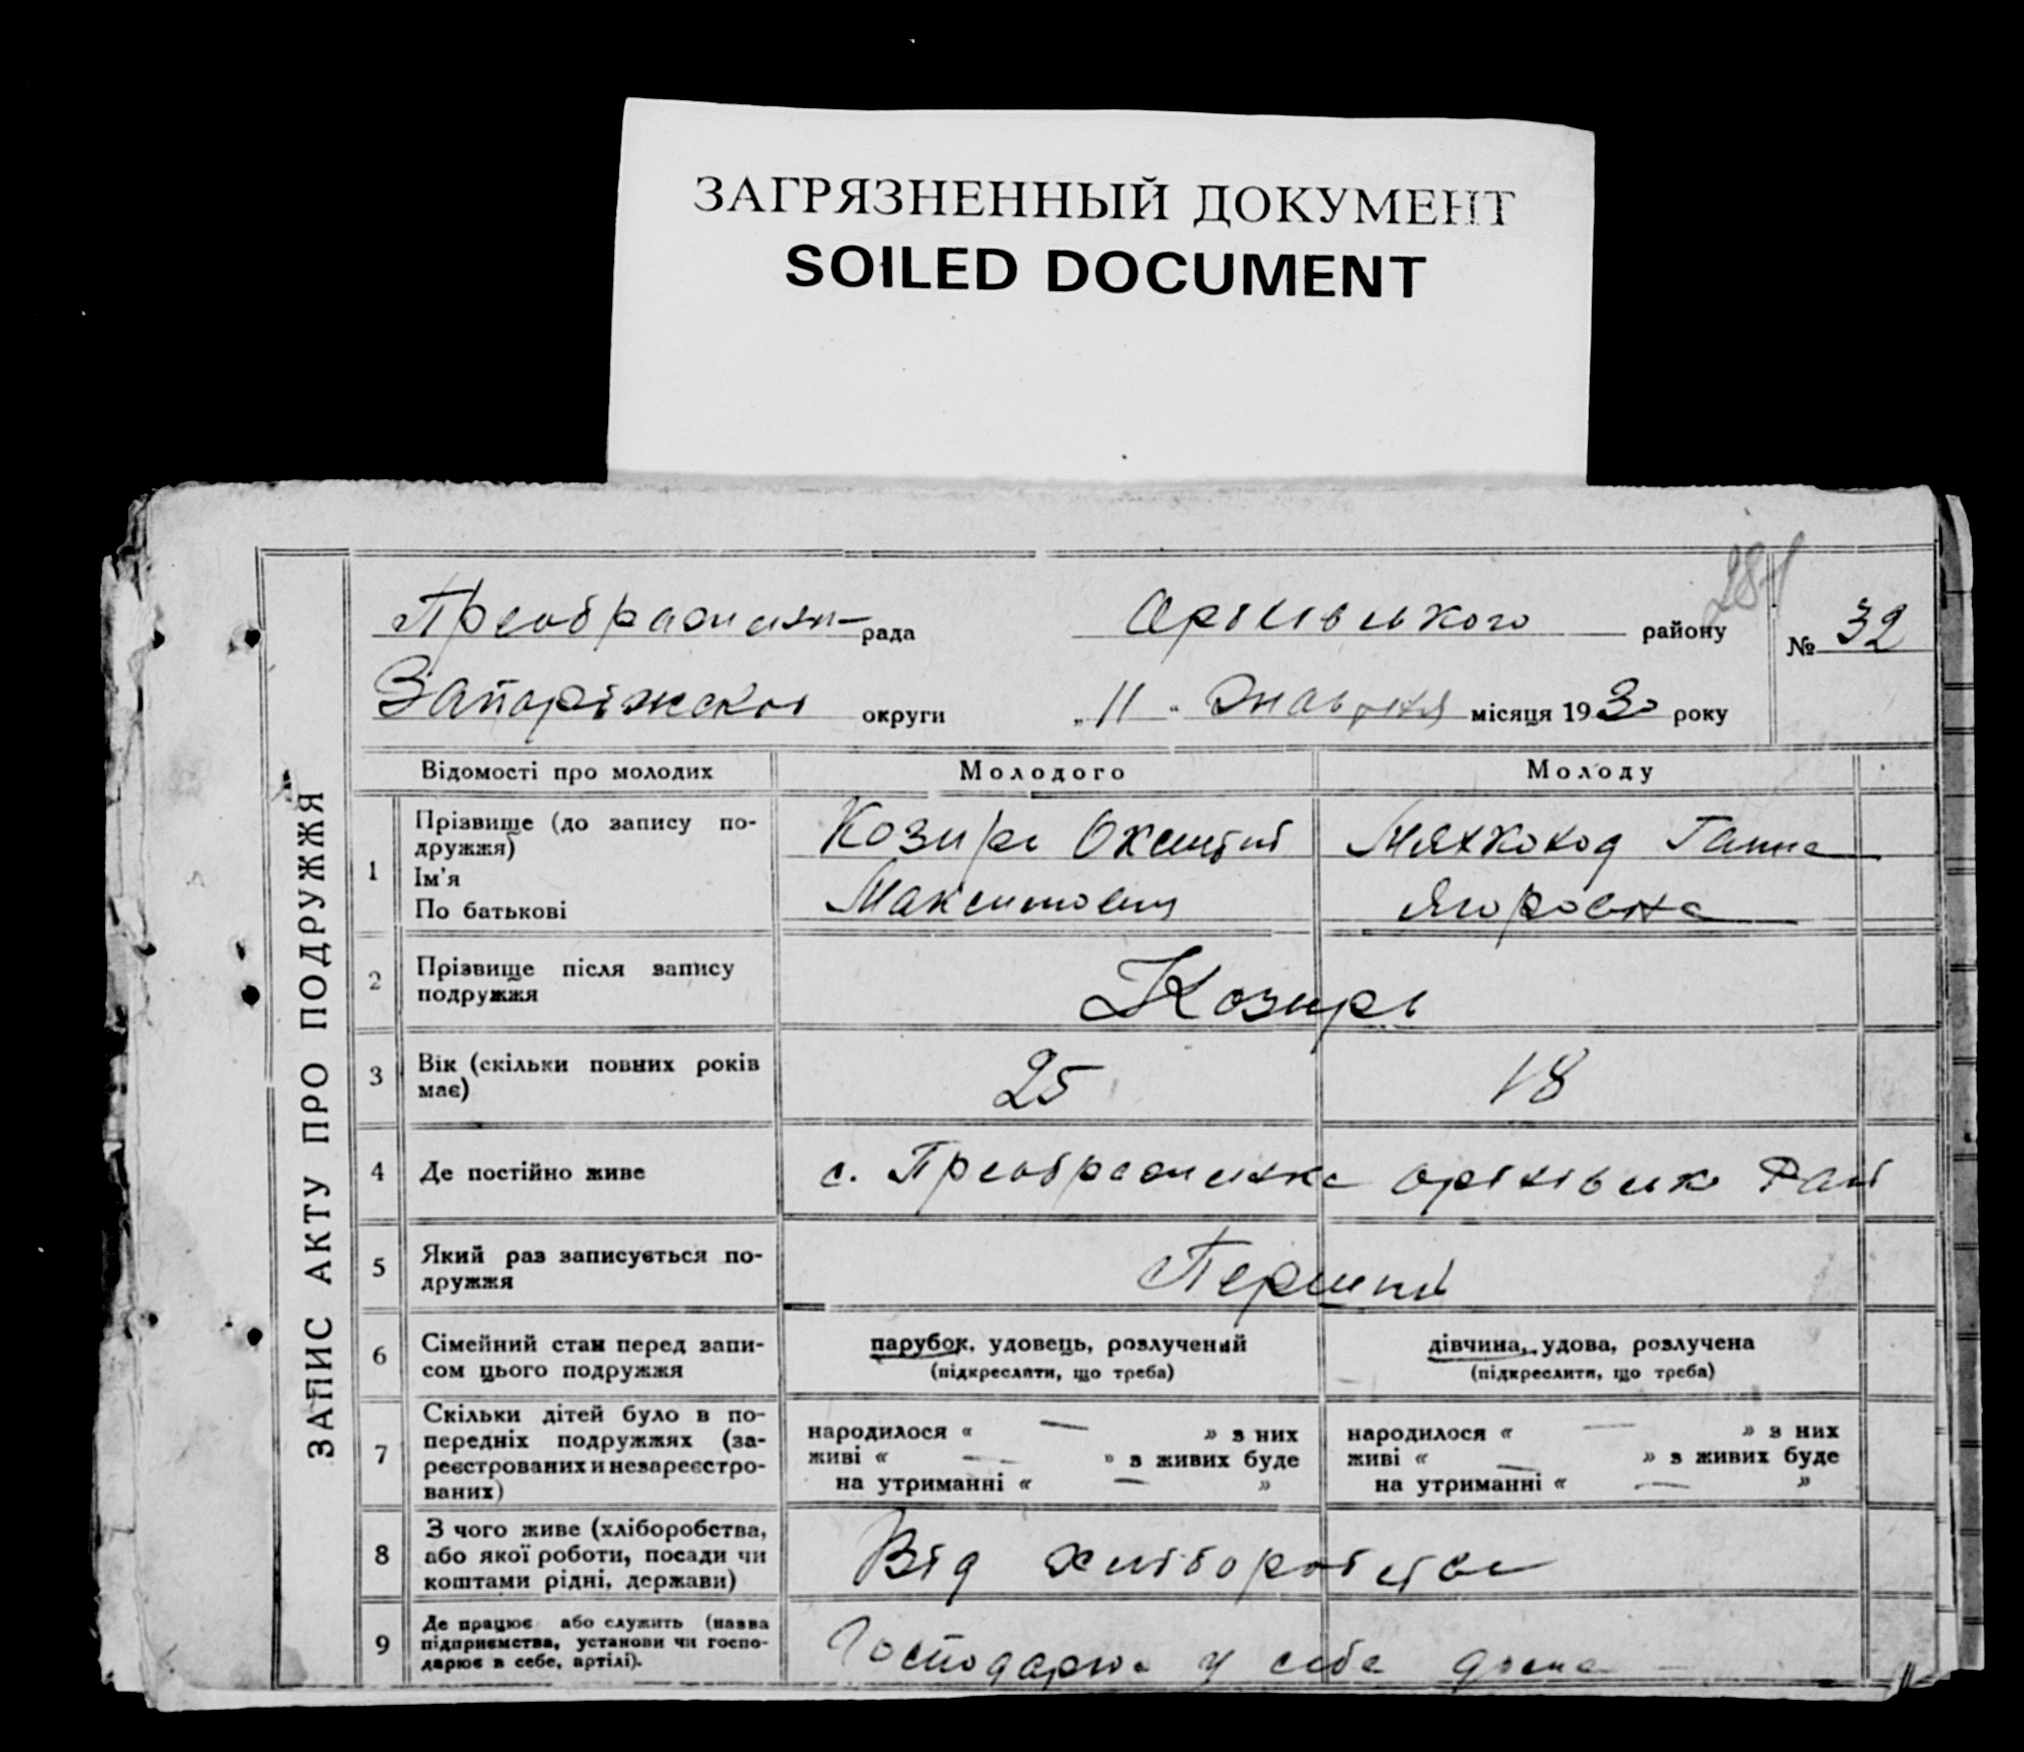 ЗАГРЯЗНЕННЫЙ ДОКУМЕНТ
SOILED DOCUMENT
281
ЗАПИС АКТУ ПРО ПОДРУЖЖЯ
Преображен– рада Оріхівського району № 32
Запоріжської округи „11“ місяця 1930 року
Відомості про молодих Молодого Молоду
1 Прізвище (до запису по-
дружжя)
Ім'я
По батькові
Козирь Оксентій Мяхкоход Ганна
Максимович Ягоровна
2 Прізвище після запису
подружжя
Козирь
3 Вік (скільки повних років
має)
25 18
4 Де постійно живе с. Преображенка Оріхівськ Рай
5 Який раз записується по-
дружжя
Перший
6 Сімейний стан перед запи-
сом цього подружжя
парубок, удовець, розлучений дівчина, удова, розлучена
(підкреслити, що треба) (підкреслити, що треба)
7 Скільки дітей було в по-
передніх подружжях (за-
реєстрованих и незареєстро-
ваних)
народилося « — » з них народилося « — » з них
живі « — » з живих буде живі « — » з живих буде
на утриманні « — » на утриманні « — »
8 З чого живе (хліборобства,
або якої роботи, посади чи
коштами рідні, держави)
Від хліборобства
9 Де працює або служить (назва
підприємства, установи чи госпо-
дарює в себе, артілі).
Господарює у себе дома